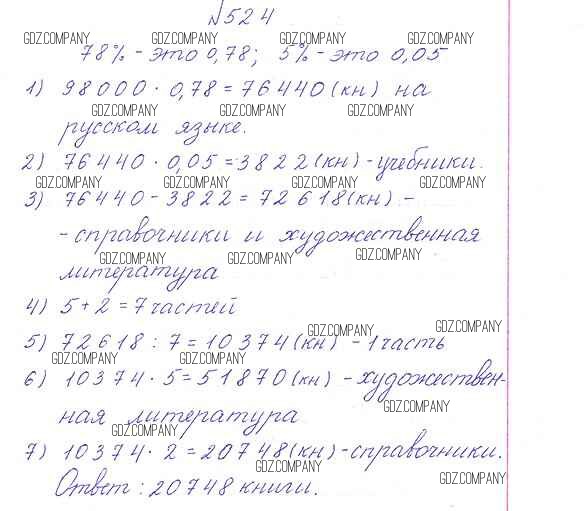 №524
GDZ.COMPANY GDZ.COMPANY GDZ.COMPANY GDZ.COMPANY
78% - это 0,78; 5% - это 0,05
1) 98000 · 0,78 = 76440 (кн) на
GDZ.COMPANY GDZ.COMPANY GDZ.COMPANY
русском языке.
2) 76440 · 0,05 = 3822 (кн) - учебники.
GDZ.COMPANY GDZ.COMPANY GDZ.COMPANY GDZ.COMPANY
3) 76440 - 3822 = 72618 (кн) -
- справочники и художественная
GDZ.COMPANY GDZ.COMPANY GDZ.COMPANY
литература
4) 5 + 2 = 7 частей
GDZ.COMPANY GDZ.COMPANY
5) 72618 : 7 = 10374 (кн) - 1 часть
GDZ.COMPANY GDZ.COMPANY
6) 10374 · 5 = 51870 (кн) - художествен-
GDZ.COMPANY
ная литература
GDZ.COMPANY
7) 10374 · 2 = 20748 (кн) - справочники.
GDZ.COMPANY GDZ.COMPANY
Ответ: 20748 книги.